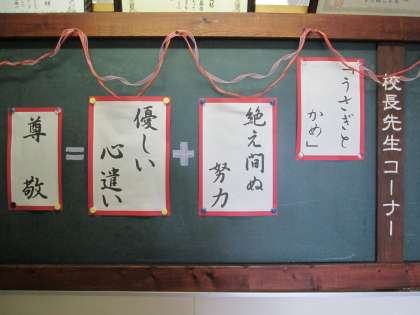 校長先生コーナー
「うさぎと
かめ」
絶え間ぬ
努力
+
優しい
心遣い
=
尊敬